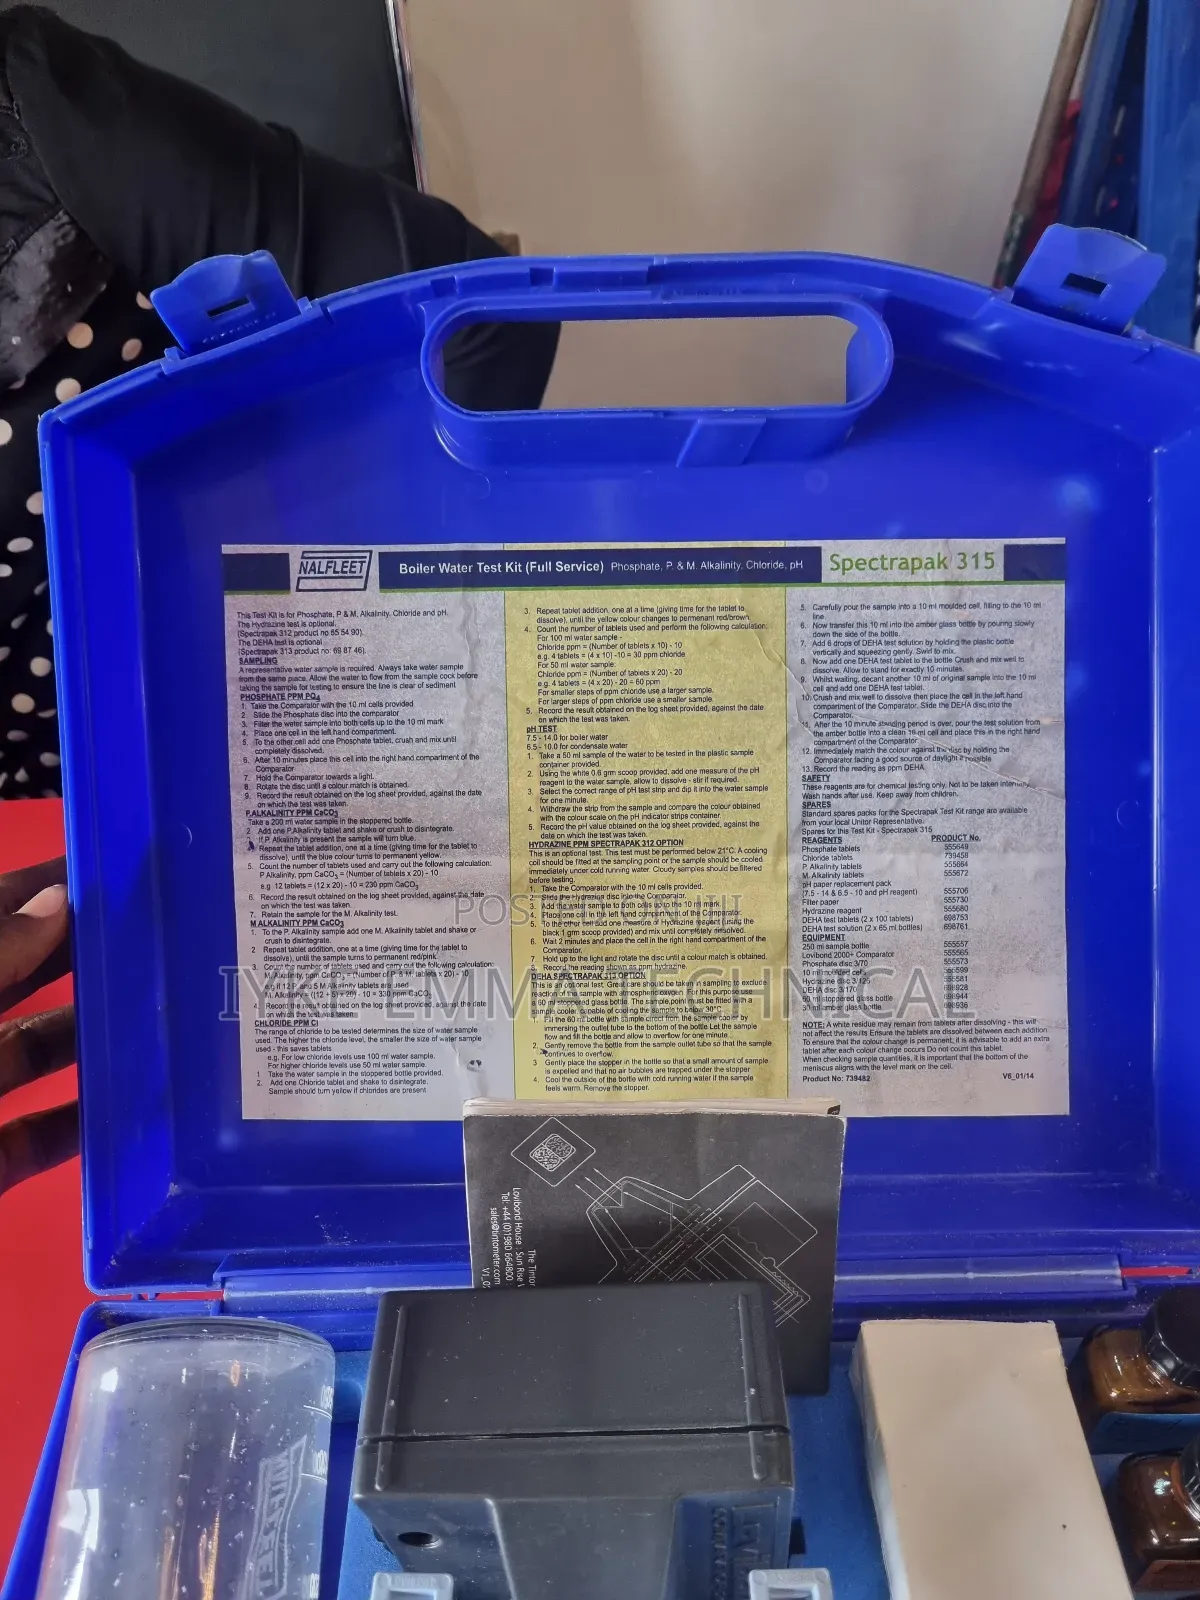 NALFLEET
Boiler Water Test Kit (Full Service) Phosphate, P. & M. Alkalinity, Chloride, pH
Spectrapak 315
This Test Kit is for Phosphate, P & M. Alkalinity, Chloride and pH.
The Hydrazine test is optional.
(Spectrapak 312 product no 55 54 90).
The DEHA test is optional
(Spectrapak 313 product no: 69 87 46).
SAMPLING
A representative water sample is required. Always take water sample
from the same place. Allow the water to flow from the sample cock before
taking the sample for testing to ensure the line is clear of sediment
PHOSPHATE PPM PO4
1. Take the Comparator with the 10 ml cells provided
2 Slide the Phosphate disc into the comparator
3. Filter the water sample into both cells up to the 10 ml mark
4. Place one cell in the left hand compartment.
5. To the other cell add one Phosphate tablet, crush and mix until
completely dissolved.
6. After 10 minutes place this cell into the right hand compartment of the
Comparator.
7. Hold the Comparator towards a light.
8. Rotate the disc until a colour match is obtained.
9. Record the result obtained on the log sheet provided, against the date
on which the test was taken.
P.ALKALINITY PPM CaCO3
Take a 200 ml water sample in the stoppered bottle.
2 Add one P.Alkalinity tablet and shake or crush to disintegrate.
If P.Alkalinity is present the sample will turn blue.
Repeat the tablet addition, one at a time (giving time for the tablet to
dissolve), until the blue colour turns to permanent yellow.
5. Count the number of tablets used and carry out the following calculation:
P.Alkalinity, ppm CaCO3 = (Number of tablets x 20) - 10
e.g. 12 tablets = (12 x 20) - 10 = 230 ppm CaCO3
6. Record the result obtained on the log sheet provided, against the date
on which the test was taken.
7. Retain the sample for the M. Alkalinity test.
M ALKALINITY PPM CaCO3
1. To the P.Alkalinity sample add one M. Alkalinity tablet and shake or
crush to disintegrate.
2 Repeat tablet addition, one at a time (giving time for the tablet to
dissolve), until the sample turns to permanent red/pink
3. Count the number of tablets used and carry out the following calculation:
M. Alkalinity, ppm CaCO3 = (Number of P + M tablets x 20) - 10
e.g. if 12 P and 5 M Alkalinity tablets are used
M. Alkalinity = ((12 + 5) x 20) - 10 = 330 ppm CaCO3
4. Record the result obtained on the log sheet provided, against the date
on which the test was taken.
CHLORIDE PPM Cl
The range of chloride to be tested determines the size of water sample
used. The higher the chloride level, the smaller the size of water sample
used - this saves tablets
e.g. For low chloride levels use 100 ml water sample.
For higher chloride levels use 50 ml water sample.
1 Take the water sample in the stoppered bottle provided.
2. Add one Chloride tablet and shake to disintegrate.
Sample should turn yellow if chlorides are present
3. Repeat tablet addition, one at a time (giving time for the tablet to
dissolve), until the yellow colour changes to permenant red/brown.
4. Count the number of tablets used and perform the following calculation:
For 100 ml water sample -
Chloride ppm = (Number of tablets x 10) - 10
e.g. 4 tablets = (4 x 10) -10 = 30 ppm chloride
For 50 ml water sample:
Chloride ppm = (Number of tablets x 20) - 20
e.g. 4 tablets = (4 x 20) - 20 = 60 ppm
For smaller steps of ppm chloride use a larger sample.
For larger steps of ppm chloride use a smaller sample.
5. Record the result obtained on the log sheet provided, against the date
on which the test was taken.
pH TEST
7.5 - 14.0 for boiler water
6.5 - 10.0 for condensate water
1. Take a 50 ml sample of the water to be tested in the plastic sample
container provided.
2. Using the white 0.6 grm scoop provided, add one measure of the pH
reagent to the water sample, allow to dissolve - stir if required.
3. Select the correct range of pH test strip and dip it into the water sample
for one minute.
4. Withdraw the strip from the sample and compare the colour obtained
with the colour scale on the pH indicator strips container.
5. Record the pH value obtained on the log sheet provided, against the
date on which the test was taken.
HYDRAZINE PPM SPECTRAPAK 312 OPTION
This is an optional test. This test must be performed below 21°C. A cooling
coil should be fitted at the sampling point or the sample should be cooled
immediately under cold running water. Cloudy samples should be filtered
before testing.
1. Take the Comparator with the 10 ml cells provided.
2. Slide the Hydrazine disc into the Comparator.
3. Add the water sample to both cells up to the 10 ml mark.
4. Place one cell in the left hand compartment of the Comparator.
5. To the other cell add one measure of Hydrazine reagent (using the
black 1 grm scoop provided) and mix until completely dissolved.
6. Wait 2 minutes and place the cell in the right hand compartment of the
Comparator.
7. Hold up to the light and rotate the disc until a colour match is obtained.
8. Record the reading shown as ppm hydrazine.
DEHA SPECTRAPAK 313 OPTION
This is an optional test. Great care should be taken in sampling to exclude
reaction of the sample with atmospheric oxygen. For this purpose use
a 60 ml stoppered glass bottle. The sample point must be fitted with a
sample cooler, capable of cooling the sample to below 30°C
1. Fill the 60 ml bottle with sample direct from the sample cooler by
immersing the outlet tube to the bottom of the bottle Let the sample
flow and fill the bottle and allow to overflow for one minute.
2. Gently remove the bottle from the sample outlet tube so that the sample
continues to overflow.
3 Gently place the stopper in the bottle so that a small amount of sample
is expelled and that no air bubbles are trapped under the stopper
4. Cool the outside of the bottle with cold running water if the sample
feels warm. Remove the stopper.
5. Carefully pour the sample into a 10 ml moulded cell, filling to the 10 ml
line.
6. Now transfer this 10 ml into the amber glass bottle by pouring slowly
down the side of the bottle.
7. Add 6 drops of DEHA test solution by holding the plastic bottle
vertically and squeezing gently. Swirl to mix.
8. Now add one DEHA test tablet to the bottle Crush and mix well to
dissolve. Allow to stand for exactly 10 minutes.
9. Whilst waiting, decant another 10 ml of original sample into the 10 ml
cell and add one DEHA test tablet.
10. Crush and mix well to dissolve then place the cell in the left hand
compartment of the Comparator. Slide the DEHA disc into the
Comparator.
11. After the 10 minute standing period is over, pour the test solution from
the amber bottle into a clean 10 ml cell and place this in the right hand
compartment of the Comparator.
12. Immediately match the colour against the disc by holding the
Comparator facing a good source of daylight if possible
13. Record the reading as ppm DEHA.
SAFETY
These reagents are for chemical testing only. Not to be taken internally
Wash hands after use. Keep away from children.
SPARES
Standard spares packs for the Spectrapak Test Kit range are available
from your local Unitor Representative.
Spares for this Test Kit - Spectrapak 315
REAGENTS PRODUCT No.
Phosphate tablets 555649
Chloride tablets 739458
P. Alkalinity tablets 555664
M. Alkalinity tablets 555672
pH paper replacement pack
(7.5 - 14 & 6.5 - 10 and pH reagent) 555706
Filter paper 555730
Hydrazine reagent 555680
DEHA test tablets (2 x 100 tablets) 698753
DEHA test solution (2 x 65 ml bottles) 698761
EQUIPMENT
250 ml sample bottle 555557
Lovibond 2000+ Comparator 555565
Phosphate disc 3/70 555573
10 ml moulded cells 555599
Hydrazine disc 3/126 555581
DEHA disc 3/17 698928
60 ml stoppered glass bottle 698944
30 ml amber glass bottle 698936
NOTE: A white residue may remain from tablets after dissolving - this will
not affect the results Ensure the tablets are dissolved between each addition
To ensure that the colour change is permanent, it is advisable to add an extra
tablet after each colour change occurs Do not count this tablet.
When checking sample quantities, it is important that the bottom of the
meniscus aligns with the level mark on the cell.
Product No: 739482 V6_01/14
IYKE EMMA TECHNICAL
The Tintor
Lovibond House : Sun Rise
Tel: +44 (0)1980 664800
sales@tintometer.com
NALFLEET